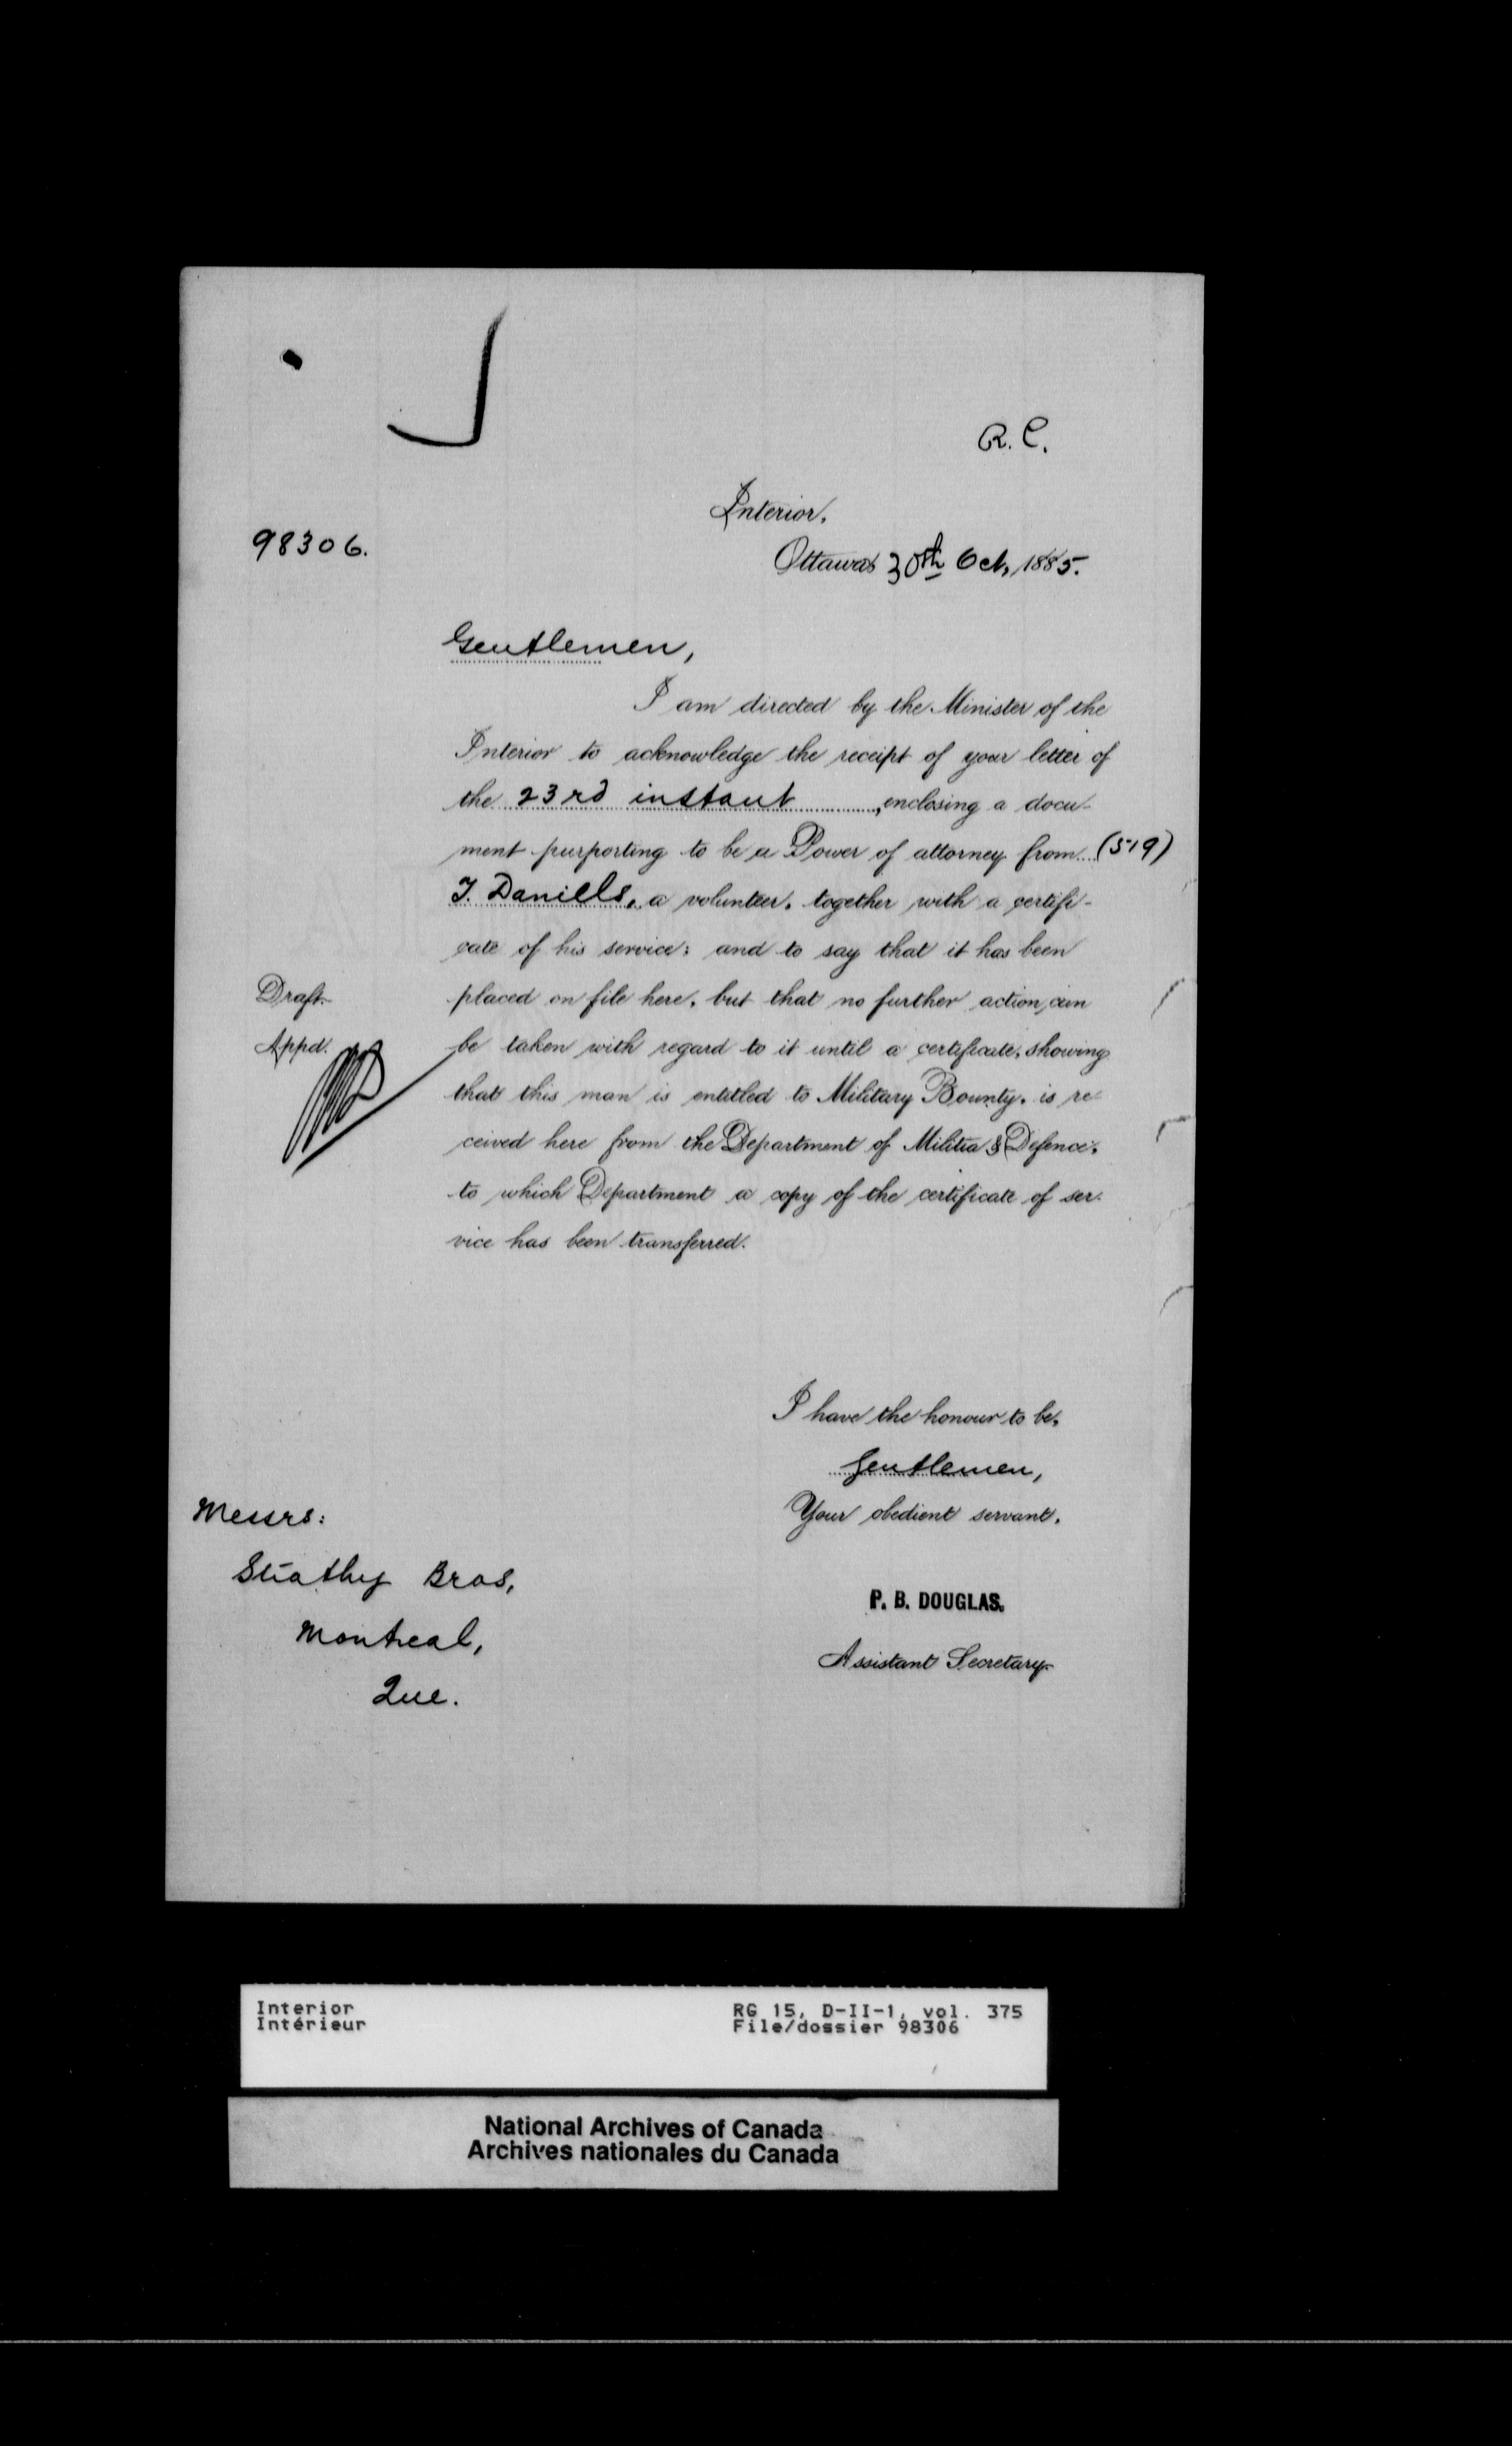 R. C.
Interior.
98306.
Ottawa 30th Oct, 1885.
Gentlemen,
I am directed by the Minister of the
Interior to acknowledge the receipt of your letter of
the 23rd instant, enclosing a docu-
ment purporting to be a Power of attorney from (519)
T. Daniells, a volunteer, together with a certifi-
cate of his service; and to say that it has been
Draft. placed on file here, but that no further action can
Appd. be taken with regard to it until a certificate, showing
that this man is entitled to Military Bounty, is re-
ceived here from the Department of Militia & Defence,
to which Department a copy of the certificate of ser-
vice has been transferred.
I have the honour to be,
Gentlemen,
Your obedient servant,
Messrs:
Strathy Bros,
Montreal,
Que.
P. B. DOUGLAS.
Assistant Secretary.
Interior
Intérieur
RG 15, D-II-1, vol. 375
File/dossier 98306
National Archives of Canada
Archives nationales du Canada